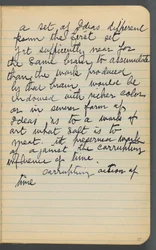 a set of Ideas different
from the first set
yet sufficiently near for
the same brain to assimilate
than the work produced
by that brain would be
endowed with richer color
or in severe form of
Ideas is to a work of
art what salt is to
meat it preserves works
of against the corrupting
influence of time
corrupting action of
time